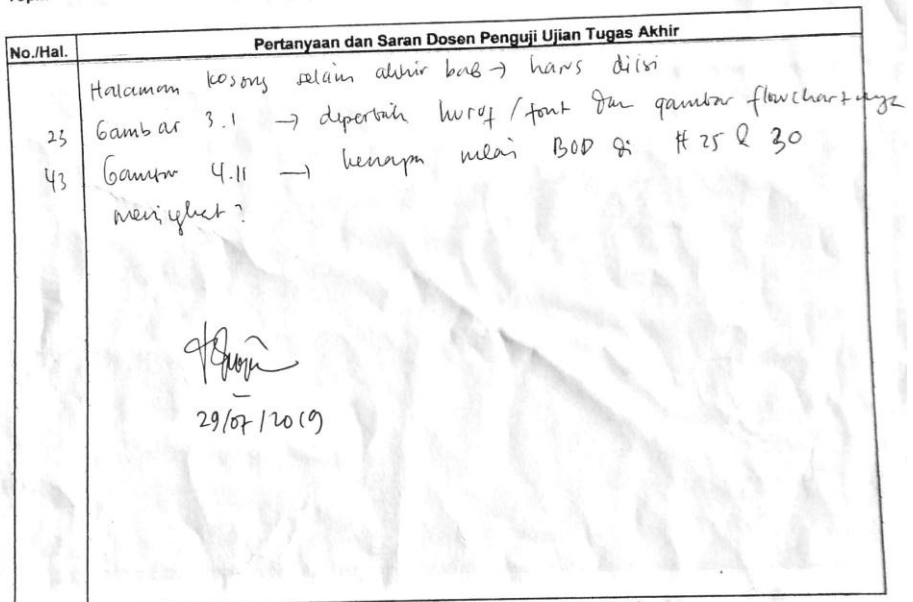 No./Hal. Pertanyaan dan Saran Dosen Penguji Ujian Tugas Akhir
Halaman kosong selain akhir bab → harus diisi
23 Gambar 3.1 → diperbaiki huruf / font dan gambar flowchartnya
43 Gambar 4.11 → kenapa nilai BOD di H 25 & 30
meningkat?
29/07/2019